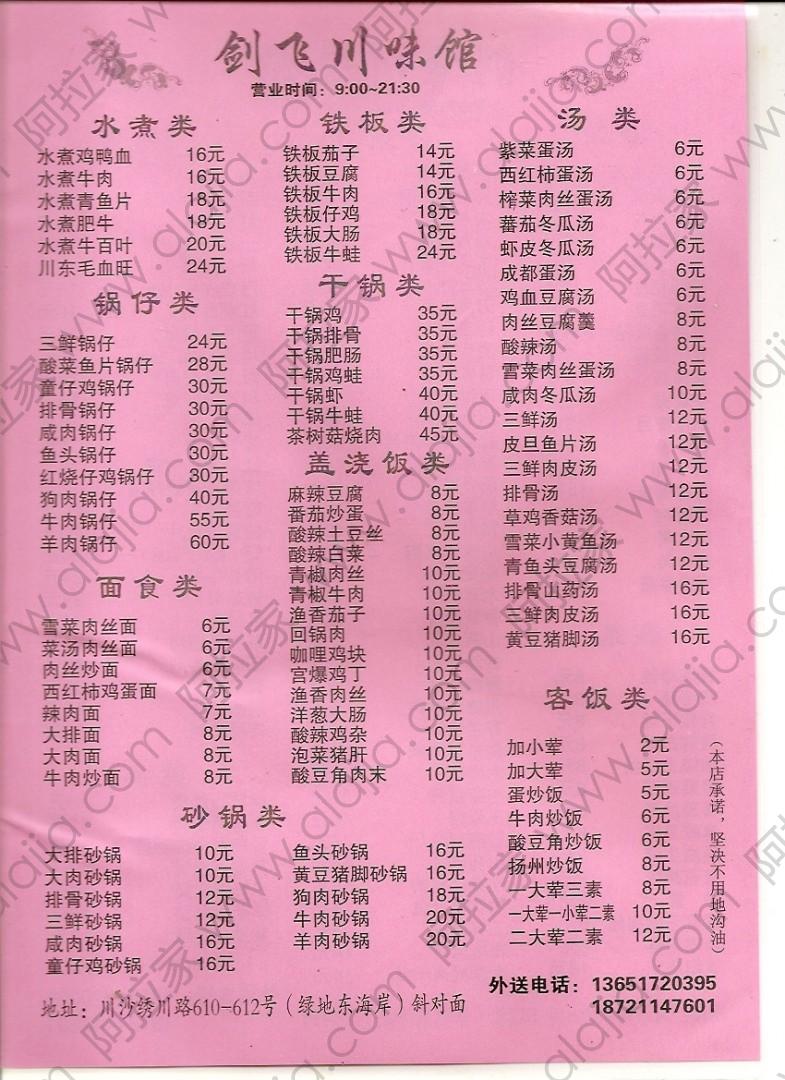 剑飞川味馆
营业时间：9:00~21:30
水煮类
水煮鸡鸭血 16元
水煮牛肉 16元
水煮青鱼片 18元
水煮肥牛 18元
水煮牛百叶 20元
川东毛血旺 24元
锅仔类
三鲜锅仔 24元
酸菜鱼片锅仔 28元
童仔鸡锅仔 30元
排骨锅仔 30元
咸肉锅仔 30元
鱼头锅仔 30元
红烧仔鸡锅仔 30元
狗肉锅仔 40元
牛肉锅仔 55元
羊肉锅仔 60元
面食类
雪菜肉丝面 6元
菜汤肉丝面 6元
肉丝炒面 6元
西红柿鸡蛋面 7元
辣肉面 7元
大排面 8元
大肉面 8元
牛肉炒面 8元
铁板类
铁板茄子 14元
铁板豆腐 14元
铁板牛肉 16元
铁板仔鸡 18元
铁板大肠 18元
铁板牛蛙 24元
干锅类
干锅鸡 35元
干锅排骨 35元
干锅肥肠 35元
干锅鸡蛙 35元
干锅虾 40元
干锅牛蛙 40元
茶树菇烧肉 45元
盖浇饭类
麻辣豆腐 8元
番茄炒蛋 8元
酸辣土豆丝 8元
酸辣白菜 8元
青椒肉丝 10元
青椒牛肉 10元
渔香茄子 10元
回锅肉 10元
咖哩鸡块 10元
宫爆鸡丁 10元
渔香肉丝 10元
洋葱大肠 10元
酸辣鸡杂 10元
泡菜猪肝 10元
酸豆角肉末 10元
汤类
紫菜蛋汤 6元
西红柿蛋汤 6元
榨菜肉丝蛋汤 6元
蕃茄冬瓜汤 6元
虾皮冬瓜汤 6元
成都蛋汤 6元
鸡血豆腐汤 6元
肉丝豆腐羹 8元
酸辣汤 8元
雪菜肉丝蛋汤 8元
咸肉冬瓜汤 10元
三鲜汤 12元
皮旦鱼片汤 12元
三鲜肉皮汤 12元
排骨汤 12元
草鸡香菇汤 12元
雪菜小黄鱼汤 12元
青鱼头豆腐汤 12元
排骨山药汤 16元
三鲜肉皮汤 16元
黄豆猪脚汤 16元
客饭类
加小荤 2元
加大荤 5元
蛋炒饭 5元
牛肉炒饭 6元
酸豆角炒饭 6元
扬州炒饭 8元
一大荤三素 8元
一大荤一小荤二素 10元
二大荤二素 12元
（本店承诺，坚决不用地沟油）
砂锅类
大排砂锅 10元
大肉砂锅 10元
排骨砂锅 12元
三鲜砂锅 12元
咸肉砂锅 16元
童仔鸡砂锅 16元
鱼头砂锅 16元
黄豆猪脚砂锅 16元
狗肉砂锅 18元
牛肉砂锅 20元
羊肉砂锅 20元
外送电话：13651720395
18721147601
地址：川沙绣川路610-612号（绿地东海岸）斜对面
阿拉家 www.alajia.com